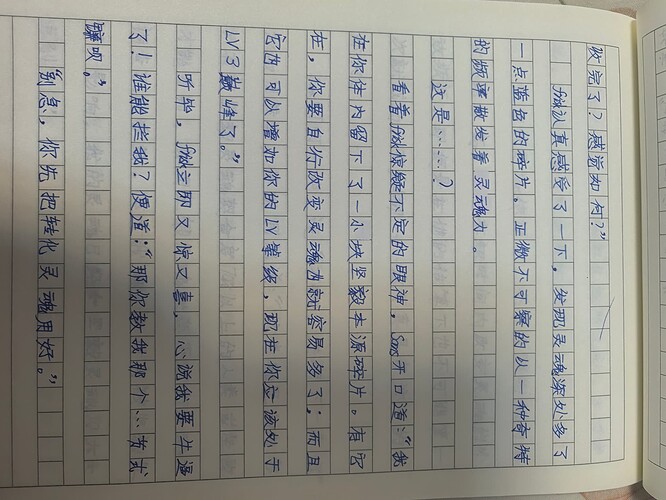 收完了？感觉如何？”
fsk认真感受了一下，发现灵魂深处多了
一点蓝色的碎片。正微不可察的以一种奇特
的频率散发着灵魂力。
这是……？
看着fsk惊疑不定的眼神，Sans开口道：“我
在你体内留下了一小块坚毅本源碎片。有它
在，你要自行改变灵魂就容易多了；而且
它也可以增加你的LV等级，现在你应该处于
LV3巅峰了。”
听毕，fsk立即又惊又喜，心说我要牛逼
了！谁能拦我？便道：“那你教我那个…
呗。”
“别急，你先把转化灵魂用好。”